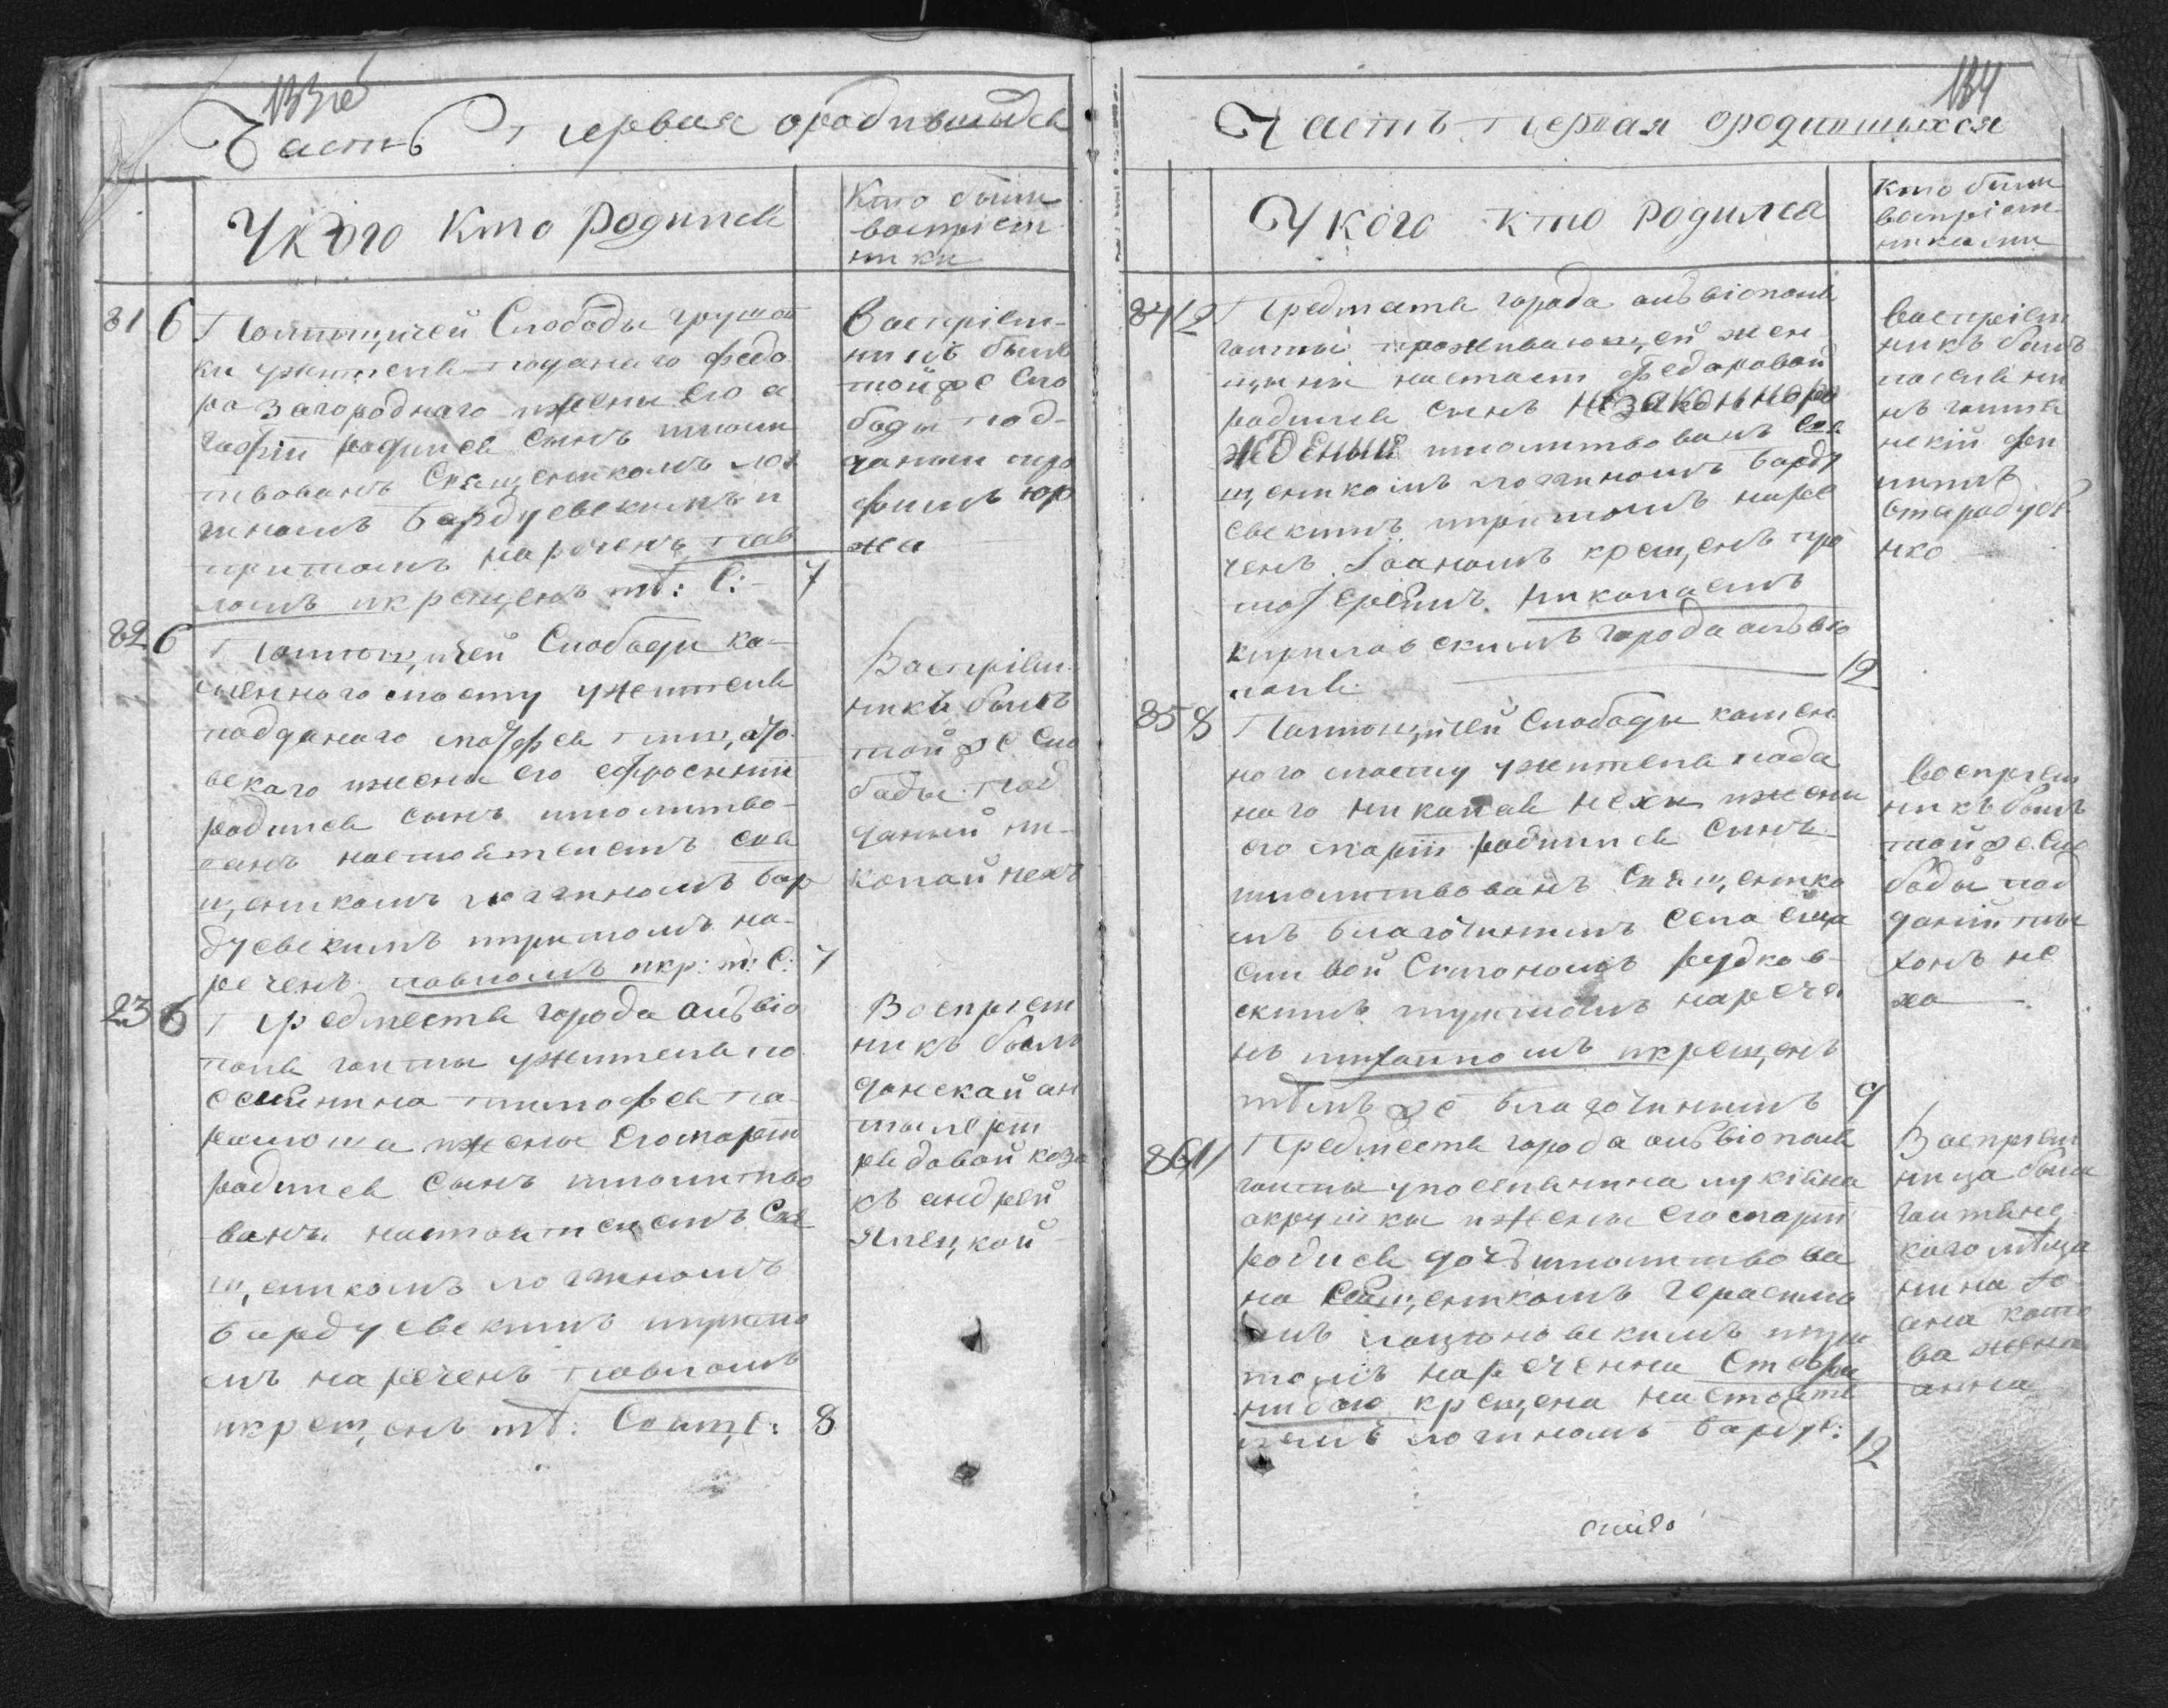 Часть первая ородившыхся
У кого кто родился
Кто были
восприем
ники
81 6 Помещичей Слободы грушов
ки жителя поданаго федо
ра Загороднаго жены его а
гафіи родился сынъ
Священикомъ лог
гиномъ Бардусевскимъ и
притомъ нареченъ пав
ломъ и крещенъ тѣ: С: 7
Восприем-
никъ былъ
той же сло
боды под-
даный тро
фимъ
82 6 Помещичей Слободы ка-
менного мосту жителя
подданаго
вскаго жены его ефросинии
родился сынъ имолитво-
ванъ настоятелемъ свя
щеникомъ логгиномъ Бар
дусевскимъ притомъ на-
реченъ павломъ икр: т: С: 7
Восприем
никъ былъ
той же сло
боды под
даный ни-
колай
23 6 Предместя города олвіо
поля голты жителя по
селянина тимофея
жены его маріи
родился сынъ имолитво
ванъ настоятелемъ свя
щеникомъ логгиномъ
Бардусевскимъ притмо
мъ нареченъ павломъ
икрещенъ тѣ: Свящ: 8
Восприем
никъ былъ
донской ар
тилеріи
рядовой коза
къ андрей
Ялецкой
134
Часть первая ородившыхся
У кого кто родился
Кто были
восприем
никами
84 12 Предместя города олвіополя
голты проживающей жен
щины настасіи федоровой
родился сынъ незаконноро
жденый имолитвованъ свя
щеникомъ логгиномъ Барду
севскимъ притомъ наре
ченъ Іоанномъ крещенъ про
тоіереймъ николаемъ
кириловскимъ города олвіо
поля 12
Восприем
никъ былъ
поселяни
нъ голтя
нскій фи
липъ
Стародуб
нко
85 8 Помещичей Слободы камен
ного мосту жителя подда
наго николая нехи жены
его маріи родился сынъ
имолитвованъ Священико
мъ благочинимъ села
Симономъ рудков-
скимъ притомъ нарече
нъ икрещенъ
тѣмъ же благочинимъ 9
Восприем
никъ былъ
той же сло
боды под
даній ти
хонъ не
ха
86 11 Предместя города олвіополя
голты упоселянина лукіяна
жены его маріи
родися дочь имолитвова
на Священикомъ герасимо
мъ при
томъ нареченна Стефа
нидою крещена настояте
лемъ логиномъ Бардус: 12
Восприем
ница была
голтянс
кого мѣща
нина Іо
ана
ва жена
анна